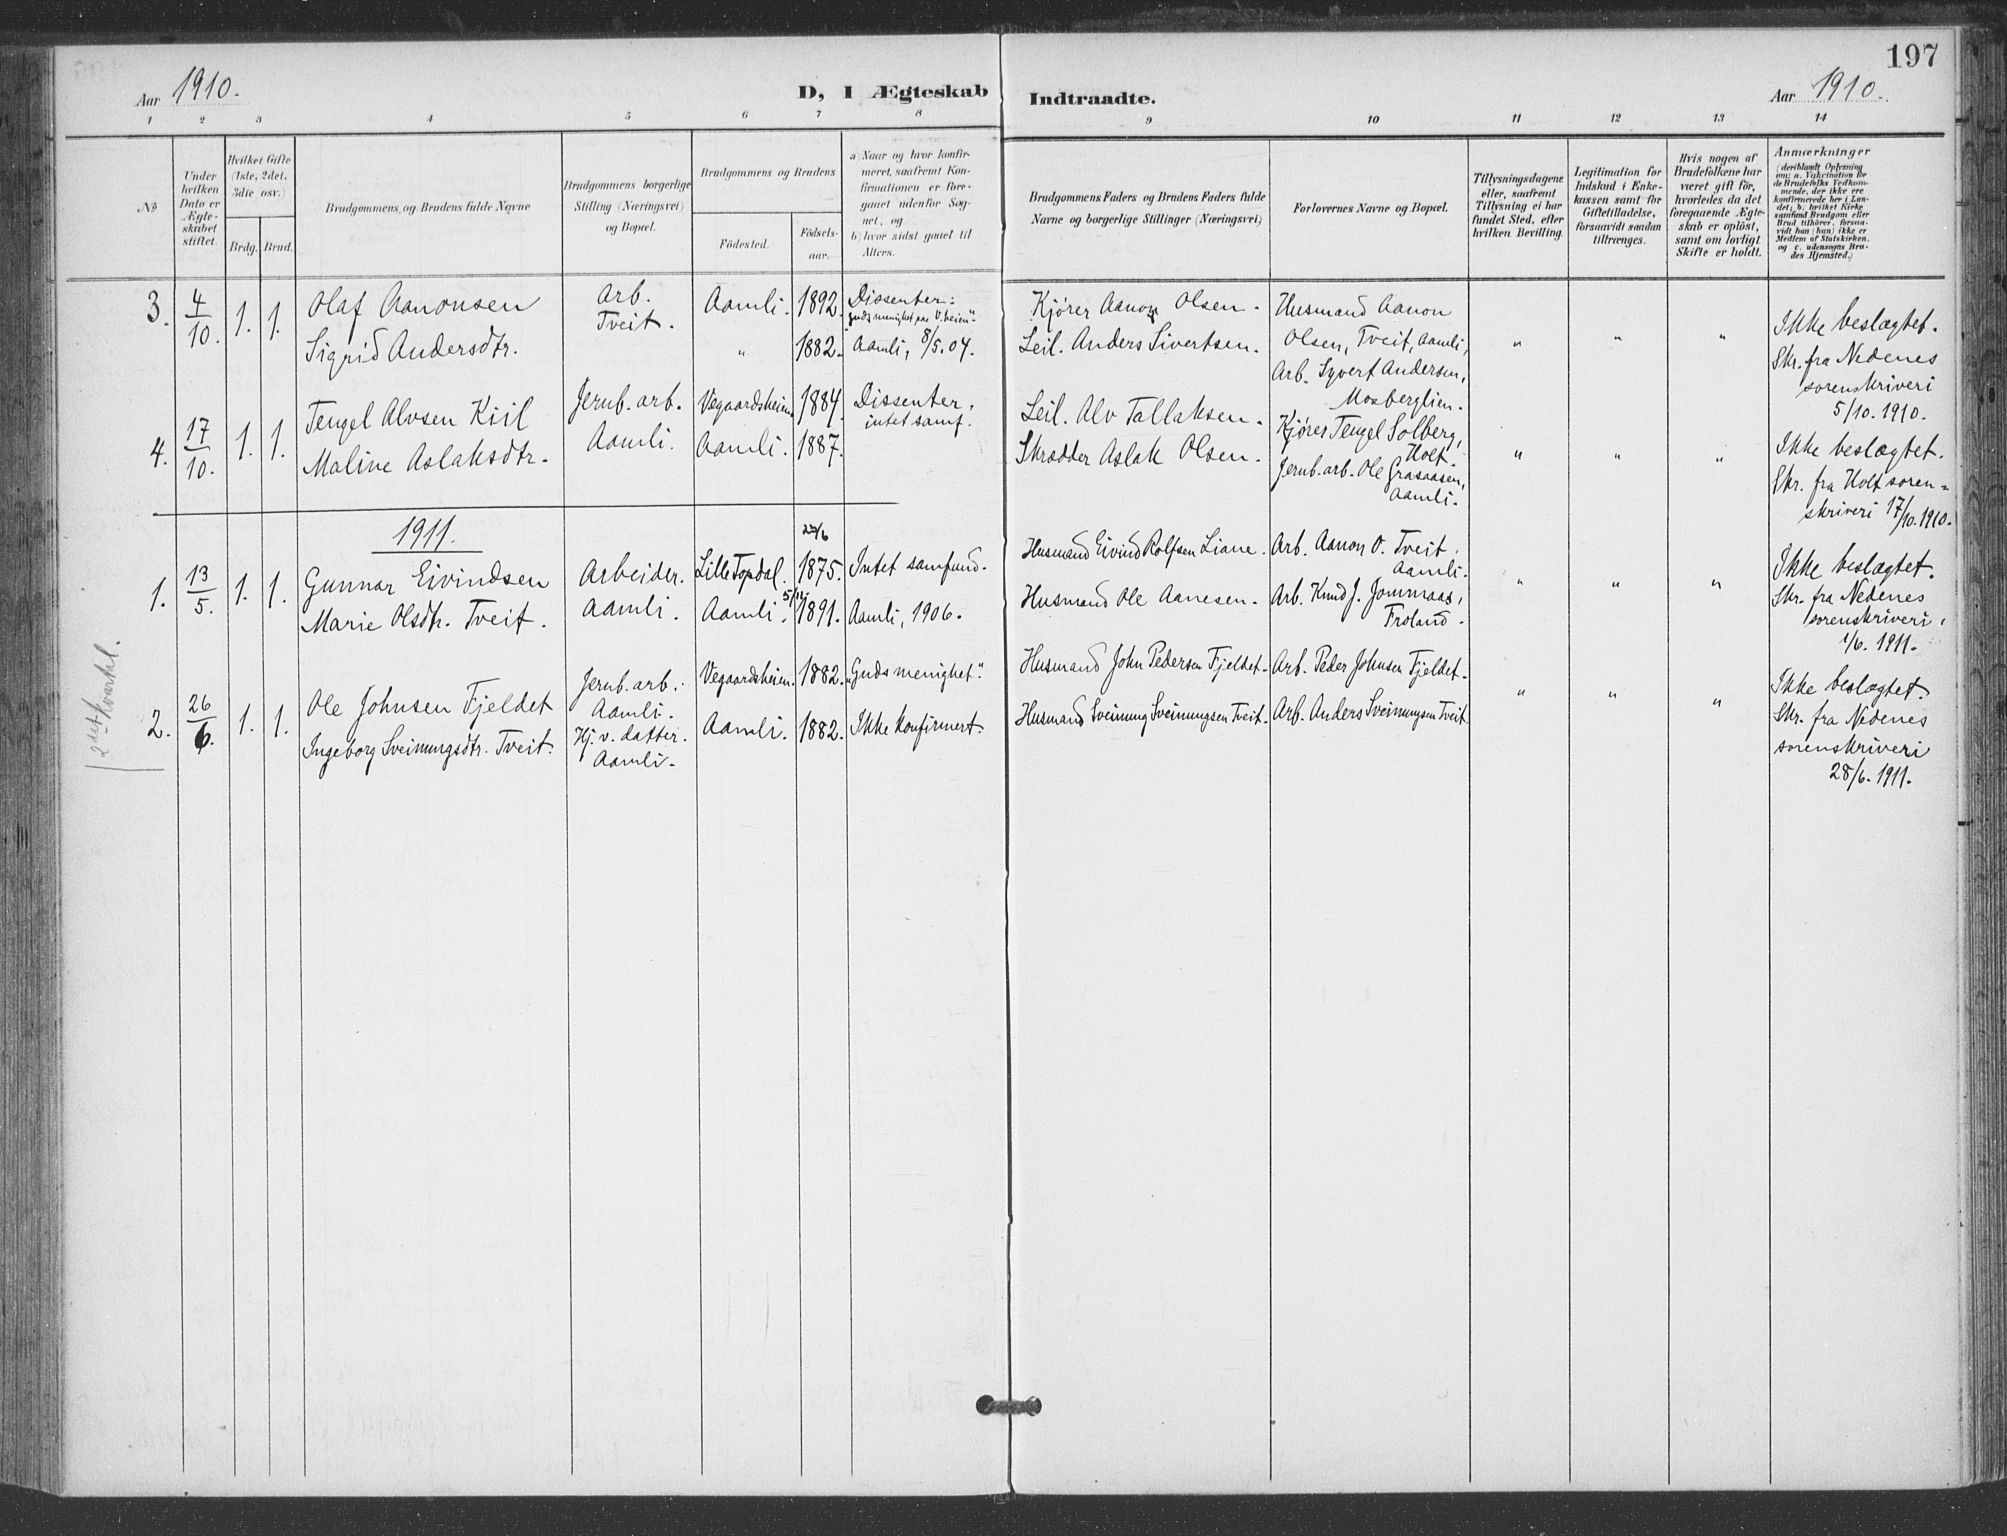 197
Aar 1910.
D, I Ægteskab Indtraadte.
Aar 1910.
1 2 3 4 5 6 7 8 9 10 11 12 13 14
No
Under hvilken Dato er Ægteskabet stiftet.
Hvilket Gifte (1ste, 2det, 3die osv.)
Brdg. Brud.
Brudgommens og Brudens fulde Navne
Brudgommens borgerlige Stilling (Næringsvei) og Bopæl.
Brudgommens og Brudens
Födested.
Födsels-aar.
a) Naar og hvor konfir-
meret, saafremt Kon-
firmationen er fore-
gaaet udenfor Sog-
net, og
b) hvor sidst gaaet til
Alters.
Brudgommens Faders og Brudens Faders fulde
Navne og borgerlige Stillinger (Næringsvei)
Forlovernes Navne og Bopæl.
Tillysningsdagene
eller, saafremt
Tillysning ei har
fundet Sted, efter
hvilken Bevilling.
Legitimation for
Indskud i Enke-
kassen samt for
Giftetilladelse,
forsaavidt saadan
tiltrænges.
Hvis nogen af
Brudefolkene har
været gift før,
hvorledes da det
foregaaende Ægte-
skab er oplöst,
samt om lovligt
Skifte er holdt.
Anmærkninger
(deriblandt Oplysning
om: a. Vakcination for
de Brudefolks Vedkom-
mende, der ikke ere
konfirmerede her i Lan-
det; b. hvilket Kirke-
samfund Brudgom eller
Brud tilhörer, forsaa-
vidt han (hun) ikke er
Medlem af Statskirken,
og c. udensogns Bru-
des Hjemsted.)
3. 4/10. 1. 1.
Olaf Aanonsen
Sigrid Andersdtr.
Arb.
Tveit.
Aamli. 1892.
" 1882.
Dissenter:
"Guds menighet paa V.heien".
Aamli, 8/5.04.
Kjører Aanon Olsen.
Leil. Anders Sivertsen.
Husmand Aanon
Olsen, Tveit, Aamli,
Arb. Syvert Andersen,
Mosberglien.
" " "
Ikke beslægtet.
Skr. fra Nedenes
sorenskriveri
5/10.1910.
4. 17/10. 1. 1.
Tengel Alvsen Kiil
Maline Aslaksdtr.
Jernb. arb.
Aamli.
Vegaardsheien. 1884.
Aamli. 1887.
Dissenter,
intet samf.
Leil. Alv Tallaksen.
Skrædder Aslak Olsen.
Kjører Tengel Solberg,
Holt.
Jernb. arb. Ole Grasaasen,
Aamli.
" " "
Ikke beslægtet.
Skr. fra Holt soren=
skriveri 17/10.1910.
1911.
1. 13/5. 1. 1.
Gunnar Eivindsen
Marie Olsdtr. Tveit.
Arbeider.
Aamli.
Lille Topdal. 1875.
Aamli. 1891.
Intet samfund.
Aamli, 1906.
Husmand Eivind Rolfsen Liane.
Husmand Ole Aanesen.
Arb. Aanon O. Tveit,
Aamli.
Arb. Knud J. Jommaas,
Froland.
" " "
Ikke beslægtet.
Skr. fra Nedenes
sorenskriveri,
1/6. 1911.
2net kvartal.
2. 26/6. 1. 1.
Ole Johnsen Fjeldet
Ingeborg Sveinungsdtr. Tveit.
Jernb. arb.
Aamli.
Hj. v. datter.
Aamli.
Vegaardsheien. 1882.
Aamli. 1882.
"Guds menighet".
Ikke konfirmert.
Husmand John Pedersen Fjeldet.
Husmand Sveinung Sveinungsen Tveit.
Arb. Peder Johnsen Fjeldet.
Arb. Anders Sveinungsen Tveit.
" " "
Ikke beslægtet.
Skr. fra Nedenes
sorenskriveri
28/6. 1911.